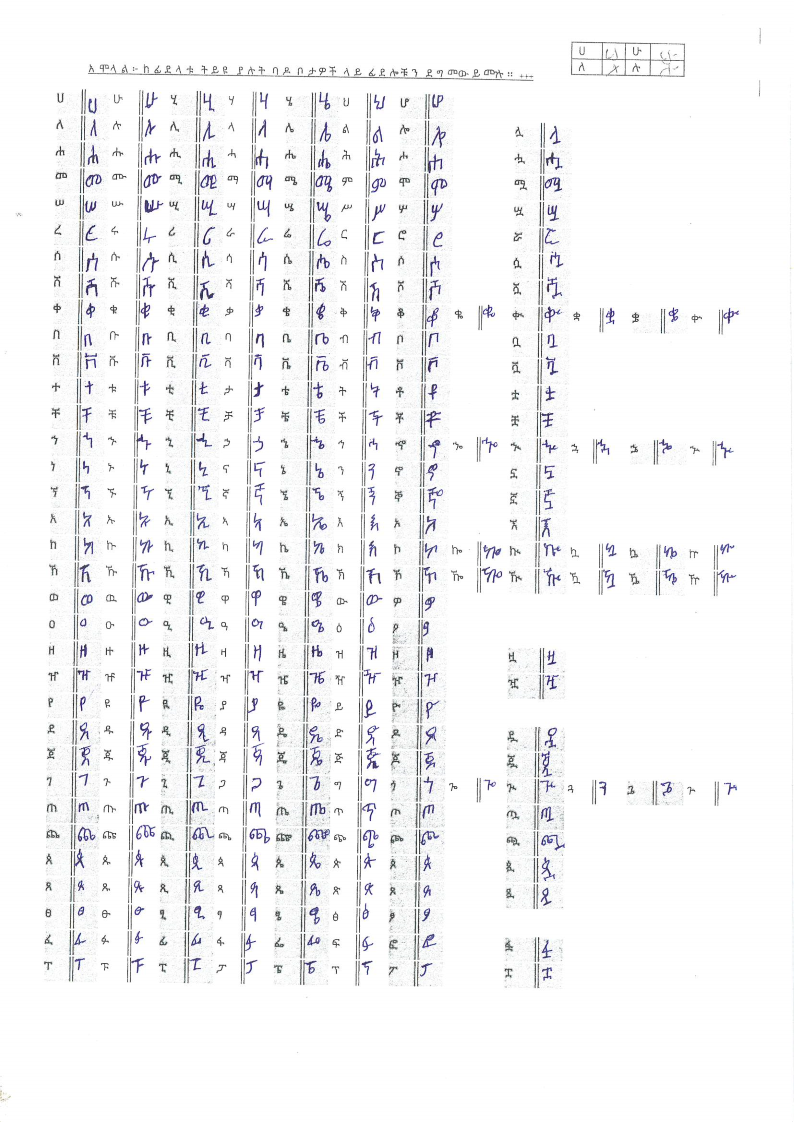 አ ሞላል ፡- ከ ፊደላቱ ትይዩ ያሉት ባዶ ቦታዎች ላይ ፊደሎቹን ደግመው ይሙሉ ። ...
ሀ ሀ ሁ ሁ
ለ ለ ሉ ሉ
ሀ ሀ ሁ ሁ ሂ ሂ ሃ ሃ ሄ ሄ ህ ህ ሆ ሆ
ለ ለ ሉ ሉ ሊ ሊ ላ ላ ሌ ሌ ል ል ሎ ሎ ሏ ሏ
ሐ ሐ ሑ ሑ ሒ ሒ ሓ ሓ ሔ ሔ ሕ ሕ ሖ ሖ ሗ ሗ
መ መ ሙ ሙ ሚ ሚ ማ ማ ሜ ሜ ም ም ሞ ሞ ሟ ሟ
ሠ ሠ ሡ ሡ ሢ ሢ ሣ ሣ ሤ ሤ ሥ ሥ ሦ ሦ ሧ ሧ
ረ ረ ሩ ሩ ሪ ሪ ራ ራ ሬ ሬ ር ር ሮ ሮ ሯ ሯ
ሰ ሰ ሱ ሱ ሲ ሲ ሳ ሳ ሴ ሴ ስ ስ ሶ ሶ ሷ ሷ
ሸ ሸ ሹ ሹ ሺ ሺ ሻ ሻ ሼ ሼ ሽ ሽ ሾ ሾ ሿ ሿ
ቀ ቀ ቁ ቁ ቂ ቂ ቃ ቃ ቄ ቄ ቅ ቅ ቆ ቆ ቈ ቈ ቊ ቊ ቋ ቋ ቌ ቌ ቍ ቍ
በ በ ቡ ቡ ቢ ቢ ባ ባ ቤ ቤ ብ ብ ቦ ቦ ቧ ቧ
ቨ ቨ ቩ ቩ ቪ ቪ ቫ ቫ ቬ ቬ ቭ ቭ ቮ ቮ ቯ ቯ
ተ ተ ቱ ቱ ቲ ቲ ታ ታ ቴ ቴ ት ት ቶ ቶ ቷ ቷ
ቸ ቸ ቹ ቹ ቺ ቺ ቻ ቻ ቼ ቼ ች ች ቾ ቾ ቿ ቿ
ኀ ኀ ኁ ኁ ኂ ኂ ኃ ኃ ኄ ኄ ኅ ኅ ኆ ኆ ኈ ኈ ኊ ኊ ኋ ኋ ኌ ኌ ኍ ኍ
ነ ነ ኑ ኑ ኒ ኒ ና ና ኔ ኔ ን ን ኖ ኖ ኗ ኗ
ኘ ኘ ኙ ኙ ኚ ኚ ኛ ኛ ኜ ኜ ኝ ኝ ኞ ኞ ኟ ኟ
አ አ ኡ ኡ ኢ ኢ ኣ ኣ ኤ ኤ እ እ ኦ ኦ ኧ ኧ
ከ ከ ኩ ኩ ኪ ኪ ካ ካ ኬ ኬ ክ ክ ኮ ኮ ኰ ኰ ኲ ኲ ኳ ኳ ኴ ኴ ኵ ኵ
ኸ ኸ ኹ ኹ ኺ ኺ ኻ ኻ ኼ ኼ ኽ ኽ ኾ ኾ ዀ ዀ ዂ ዂ ዃ ዃ ዄ ዄ ዅ ዅ
ወ ወ ዉ ዉ ዊ ዊ ዋ ዋ ዌ ዌ ው ው ዎ ዎ
ዐ ዐ ዑ ዑ ዒ ዒ ዓ ዓ ዔ ዔ ዕ ዕ ዖ ዖ
ዘ ዘ ዙ ዙ ዚ ዚ ዛ ዛ ዜ ዜ ዝ ዝ ዞ ዞ ዟ ዟ
ዠ ዠ ዡ ዡ ዢ ዢ ዣ ዣ ዤ ዤ ዥ ዥ ዦ ዦ ዧ ዧ
የ የ ዩ ዩ ዪ ዪ ያ ያ ዬ ዬ ይ ይ ዮ ዮ
ደ ደ ዱ ዱ ዲ ዲ ዳ ዳ ዴ ዴ ድ ድ ዶ ዶ ዷ ዷ
ጀ ጀ ጁ ጁ ጂ ጂ ጃ ጃ ጄ ጄ ጅ ጅ ጆ ጆ ጇ ጇ
ገ ገ ጉ ጉ ጊ ጊ ጋ ጋ ጌ ጌ ግ ግ ጎ ጎ ጐ ጐ ጒ ጒ ጓ ጓ ጔ ጔ ጕ ጕ
ጠ ጠ ጡ ጡ ጢ ጢ ጣ ጣ ጤ ጤ ጥ ጥ ጦ ጦ ጧ ጧ
ጨ ጨ ጩ ጩ ጪ ጪ ጫ ጫ ጬ ጬ ጭ ጭ ጮ ጮ ጯ ጯ
ጰ ጰ ጱ ጱ ጲ ጲ ጳ ጳ ጴ ጴ ጵ ጵ ጶ ጶ ጷ ጷ
ጸ ጸ ጹ ጹ ጺ ጺ ጻ ጻ ጼ ጼ ጽ ጽ ጾ ጾ ጿ ጿ
ፀ ፀ ፁ ፁ ፂ ፂ ፃ ፃ ፄ ፄ ፅ ፅ ፆ ፆ
ፈ ፈ ፉ ፉ ፊ ፊ ፋ ፋ ፌ ፌ ፍ ፍ ፎ ፎ ፏ ፏ
ፐ ፐ ፑ ፑ ፒ ፒ ፓ ፓ ፔ ፔ ፕ ፕ ፖ ፖ ፗ ፗ